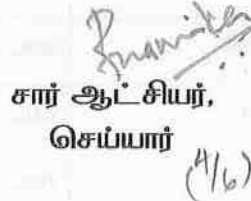 சார் ஆட்சியர்,
செய்யார்
(4/6)